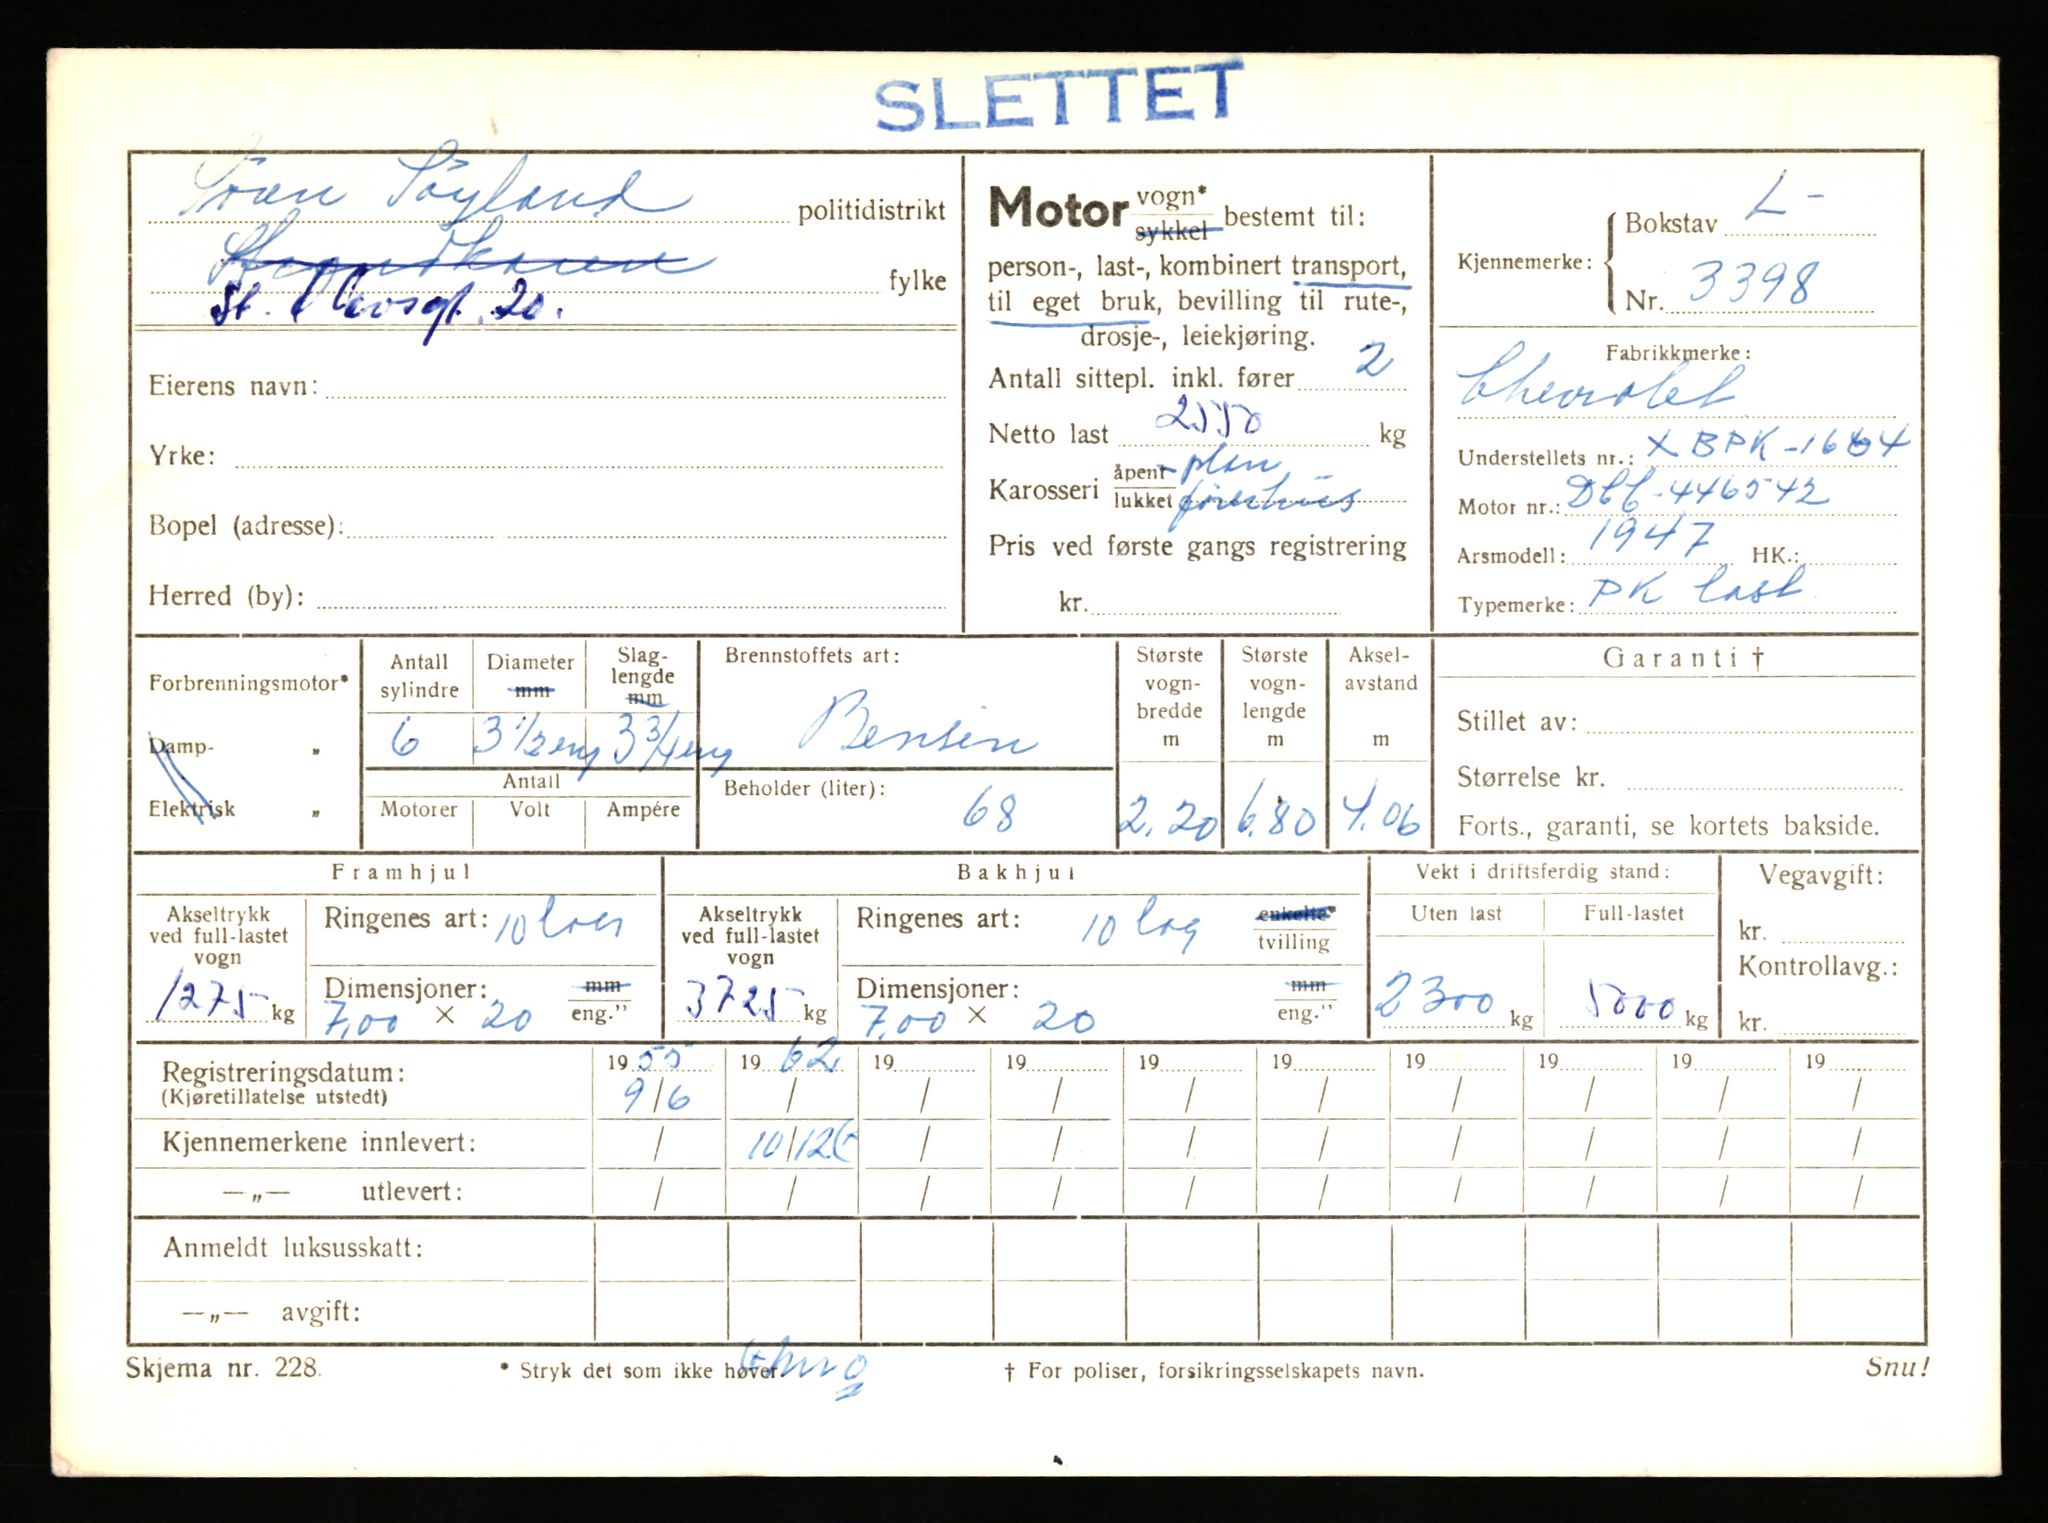 SLETTET
Sören Söyland politidistrikt
fylke
St. Olavsgt. 20.
Eierens navn:
Yrke:
Bopel (adresse):
Herred (by):
Motor vogn* sykkel bestemt til:
person-, last-, kombinert transport,
til eget bruk, bevilling til rute-,
drosje-, leiekjøring.
Antall sittepl. inkl. fører 2
Netto last 2550 kg
Karosseri åpent lukket plan
førerhus
Pris ved første gangs registrering
kr.
Kjennemerke: Bokstav L-
Nr. 3398
Fabrikkmerke:
Chevrolet
Understellets nr.: XBPK-1664
Motor nr.: Dbf-446542
Arsmodell: 1947 HK.:
Typemerke: PK last
Forbrenningsmotor*
Damp- „
Elektrisk „
Antall sylindre
Diameter mm
Slag-lengde mm
6 3 1/2 eng 3 3/4 eng
Antall
Motorer Volt Ampére
Brennstoffets art:
Bensin
Beholder (liter):
68
Største vogn-bredde m
2.20
Største vogn-lengde m
6.80
Aksel-avstand m
4.06
Garanti †
Stillet av:
Størrelse kr.
Forts., garanti, se kortets bakside.
Framhjul
Akseltrykk ved full-lastet vogn
1275 kg
Ringenes art: 10
Dimensjoner: mm eng."
7,00 × 20
Bakhjul
Akseltrykk ved full-lastet vogn
3725 kg
Ringenes art: 10 lag enkelte* tvilling
Dimensjoner: mm eng."
7,00 × 20
Vekt i driftsferdig stand:
Uten last Full-lastet
2300 kg 5000 kg
Vegavgift:
kr.
Kontrollavg.:
kr.
Registreringsdatum: 19 55 19 62 19 19 19 19 19 19 19 19
(Kjøretillatelse utstedt) 9/6 / / / / / / / / /
Kjennemerkene innlevert: / 10/12 / / / / / / / /
—„— utlevert: / / / / / / / / / /
Anmeldt luksusskatt:
—„— avgift:
Skjema nr. 228. * Stryk det som ikke høver. † For poliser, forsikringsselskapets navn. Snu!